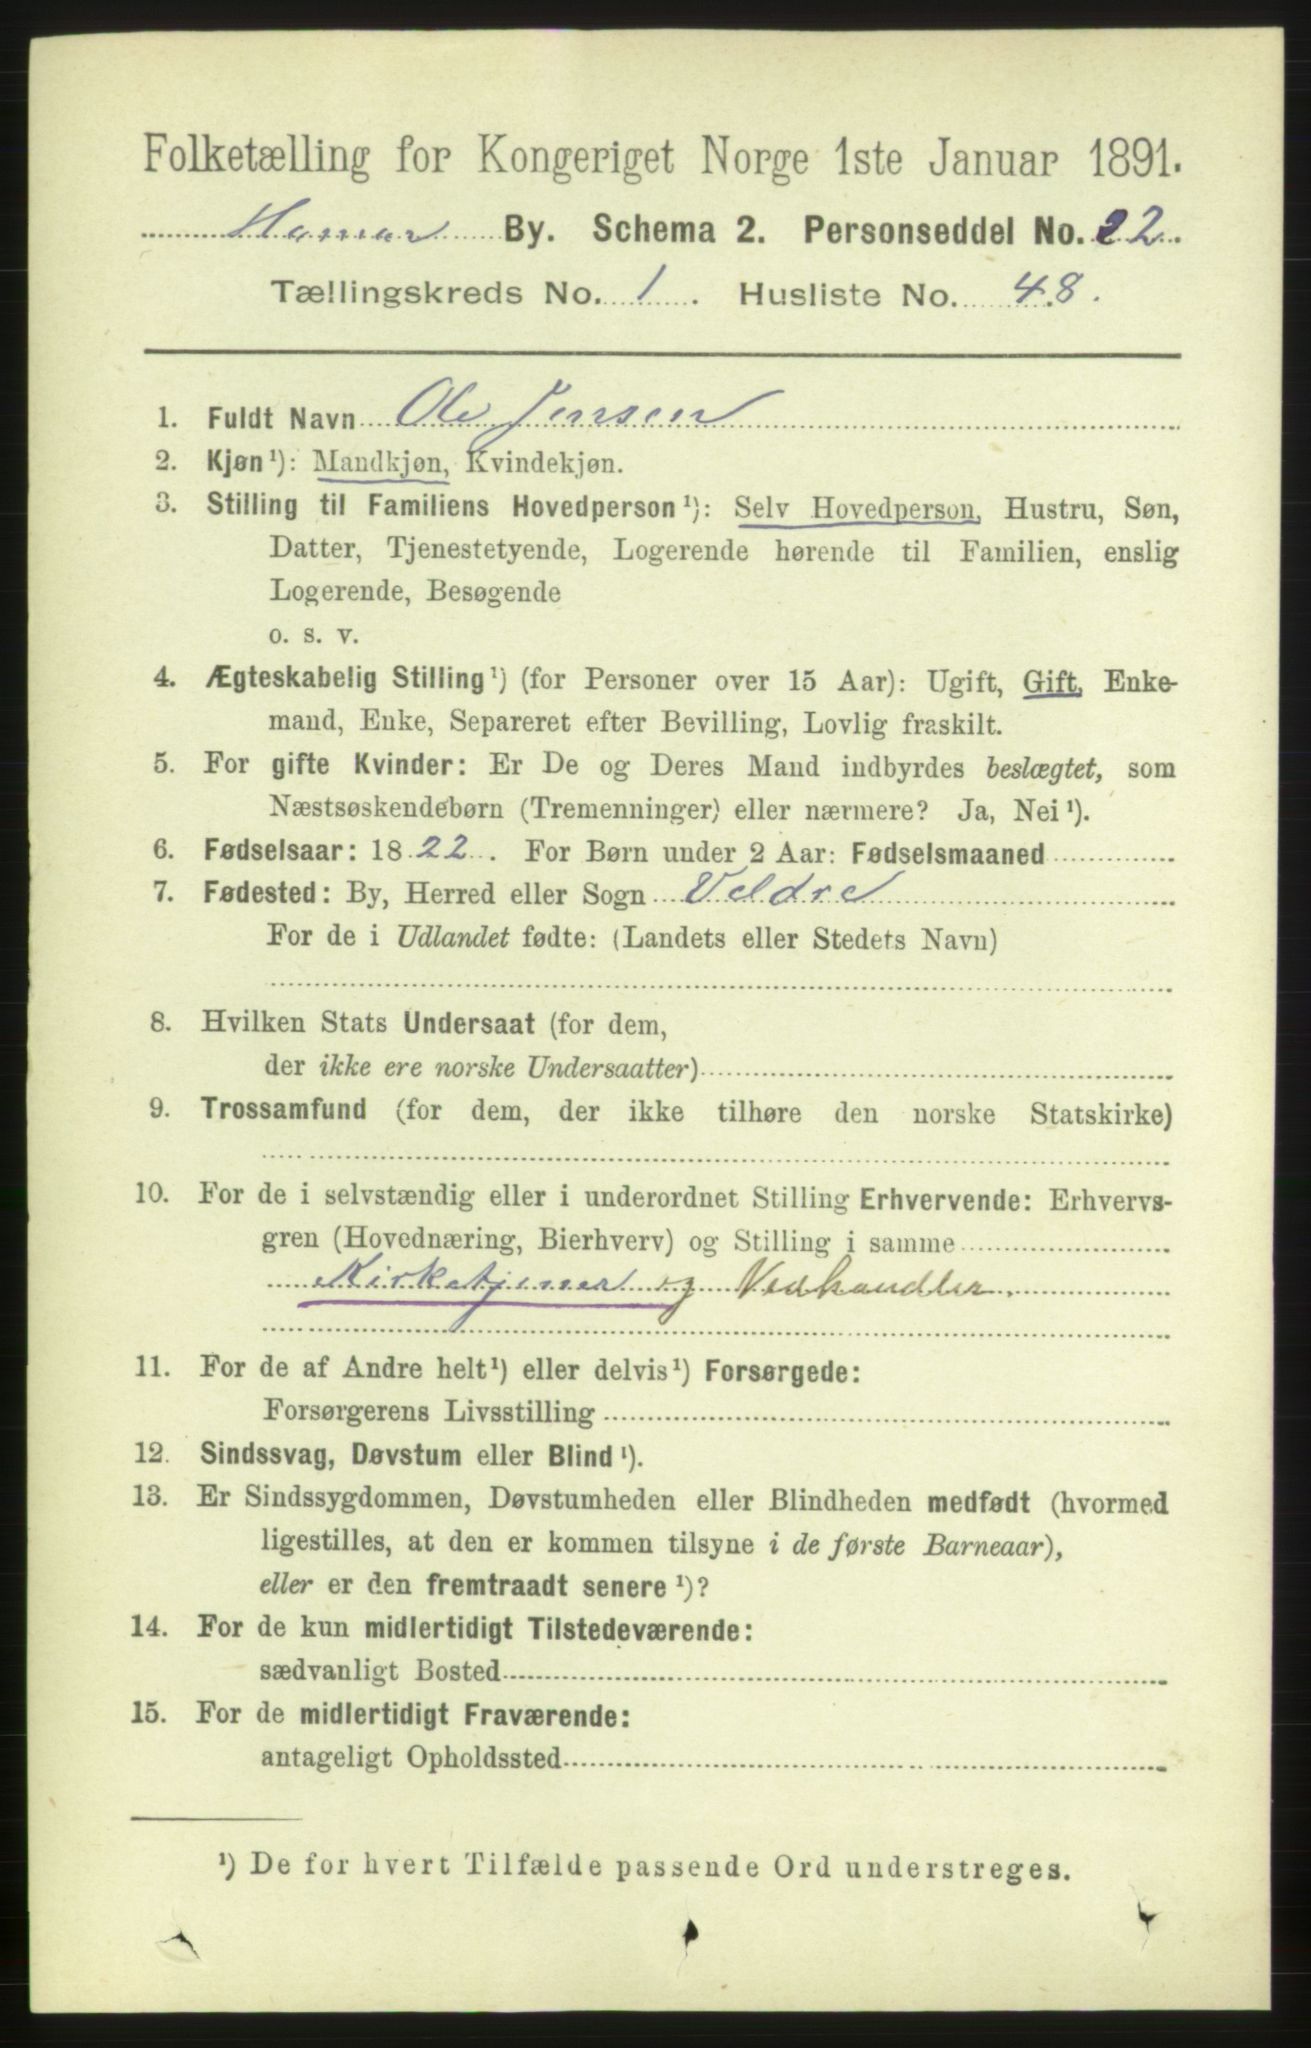 Folketælling for Kongeriget Norge 1ste Januar 1891.
Hamar By. Schema 2. Personseddel No. 22.
Tællingskreds No. 1. Husliste No. 48.
1. Fuldt Navn Ole Jensen
2. Kjøn¹): Mandkjøn, Kvindekjøn.
3. Stilling til Familiens Hovedperson¹): Selv Hovedperson, Hustru, Søn,
Datter, Tjenestetyende, Logerende hørende til Familien, enslig
Logerende, Besøgende
o. s. v.
4. Ægteskabelig Stilling¹) (for Personer over 15 Aar): Ugift, Gift, Enke-
mand, Enke, Separeret efter Bevilling, Lovlig fraskilt.
5. For gifte Kvinder: Er De og Deres Mand indbyrdes beslægtet, som
Næstsøskendebørn (Tremenninger) eller nærmere? Ja, Nei¹).
6. Fødselsaar: 1822. For Børn under 2 Aar: Fødselsmaaned
7. Fødested: By, Herred eller Sogn Veldre
For de i Udlandet fødte: (Landets eller Stedets Navn)
8. Hvilken Stats Undersaat (for dem,
der ikke ere norske Undersaatter)
9. Trossamfund (for dem, der ikke tilhøre den norske Statskirke)
10. For de i selvstændig eller i underordnet Stilling Erhvervende: Erhvervs-
gren (Hovednæring, Bierhverv) og Stilling i samme
Kirketjener og Vedhandler.
11. For de af Andre helt¹) eller delvis¹) Forsørgede:
Forsørgerens Livsstilling
12. Sindssvag, Døvstum eller Blind¹).
13. Er Sindssygdommen, Døvstumheden eller Blindheden medfødt (hvormed
ligestilles, at den er kommen tilsyne i de første Barneaar),
eller er den fremtraadt senere¹)?
14. For de kun midlertidigt Tilstedeværende:
sædvanligt Bosted
15. For de midlertidigt Fraværende:
antageligt Opholdssted
¹) De for hvert Tilfælde passende Ord understreges.